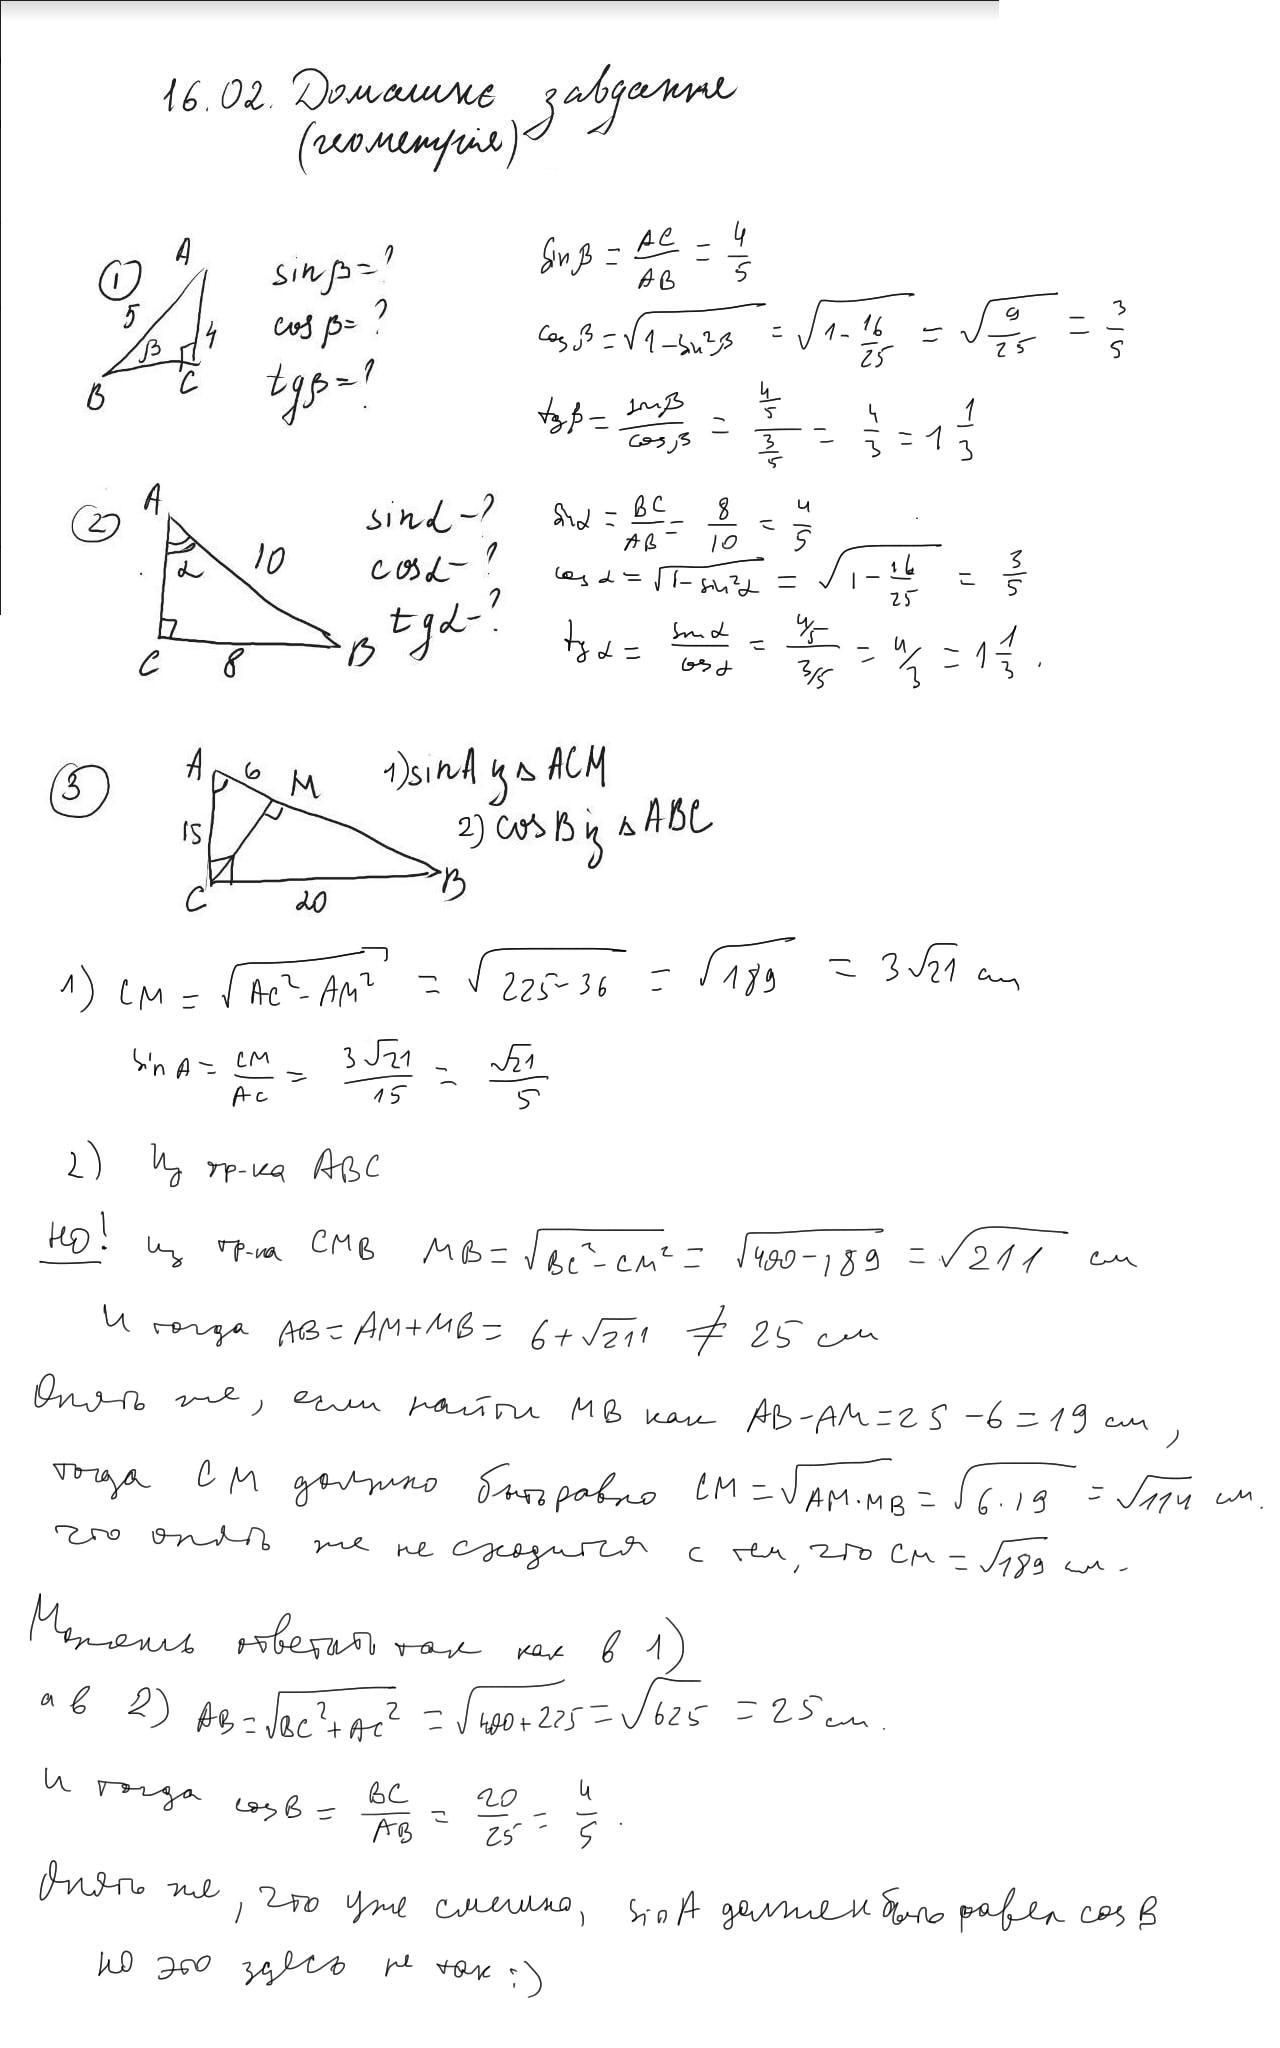 16.02. Домашнє завдання
(геометрія)
① A 5 4 β B C
sin β = ?
cos β = ?
tg β = ?
sin β = AC/AB = 4/5
cos β = √(1 - sin²β) = √(1 - 16/25) = √(9/25) = 3/5
tg β = sin β/cos β = (4/5)/(3/5) = 4/3 = 1 1/3
② A α 10 C 8 B
sin α - ?
cos α - ?
tg α - ?
sin α = BC/AB = 8/10 = 4/5
cos α = √(1 - sin²α) = √(1 - 16/25) = 3/5
tg α = sin α/cos α = (4/5)/(3/5) = 4/3 = 1 1/3.
③ A 6 M 15 C 20 B
1) sin A із △ ACM
2) cos B із △ ABC
1) CM = √(AC² - AM²) = √(225 - 36) = √189 = 3√21 см
sin A = CM/AC = 3√21/15 = √21/5
2) Из тр-ка ABC
НО! из тр-ка CMB MB = √(BC² - CM²) = √(400 - 189) = √211 см
И тогда AB = AM + MB = 6 + √211 ≠ 25 см
Опять же, если найти MB как AB - AM = 25 - 6 = 19 см,
тогда CM должно быть равно CM = √(AM · MB) = √(6 · 19) = √114 см.
что опять же не сходится с тем, что CM = √189 см.
Можешь ответить так как в 1)
а в 2) AB = √(BC² + AC²) = √(400 + 225) = √625 = 25 см.
И тогда cos B = BC/AB = 20/25 = 4/5.
Опять же, что уже смешно, sin A должен быть равен cos B
но это здесь не так :)